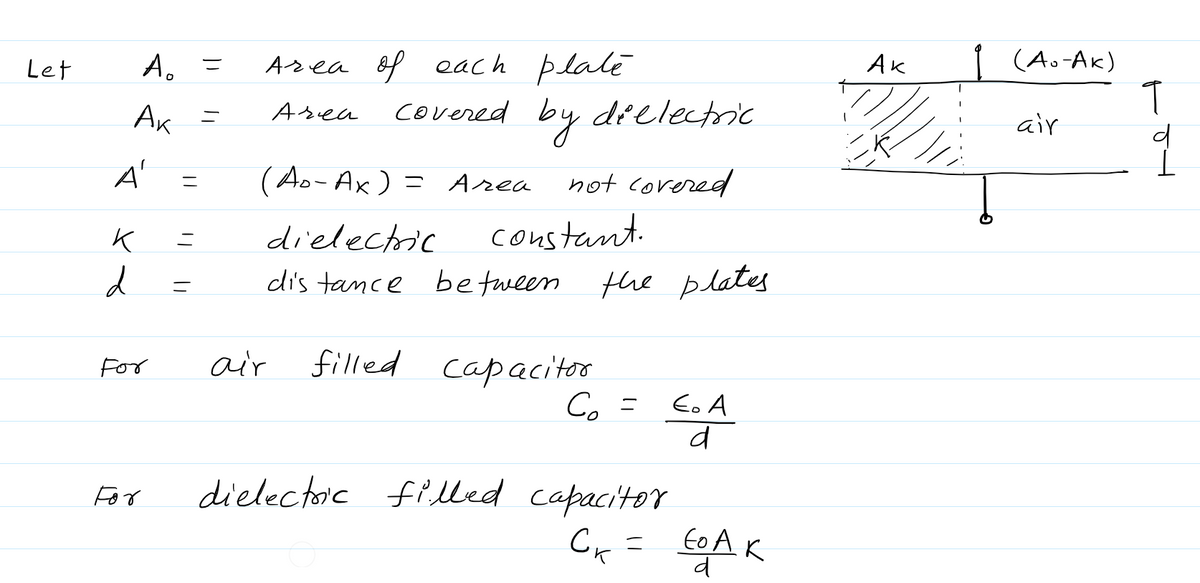 Let A₀ = Area of each plate
A_K = Area covered by dielectric
A' = (A₀-A_K) = Area not covered
K = dielectric constant.
d = distance between the plates
A_K (A₀-A_K)
K air d
For air filled capacitor
C₀ = ϵ₀A
d
For dielectric filled capacitor
C_K = ϵ₀A K
d